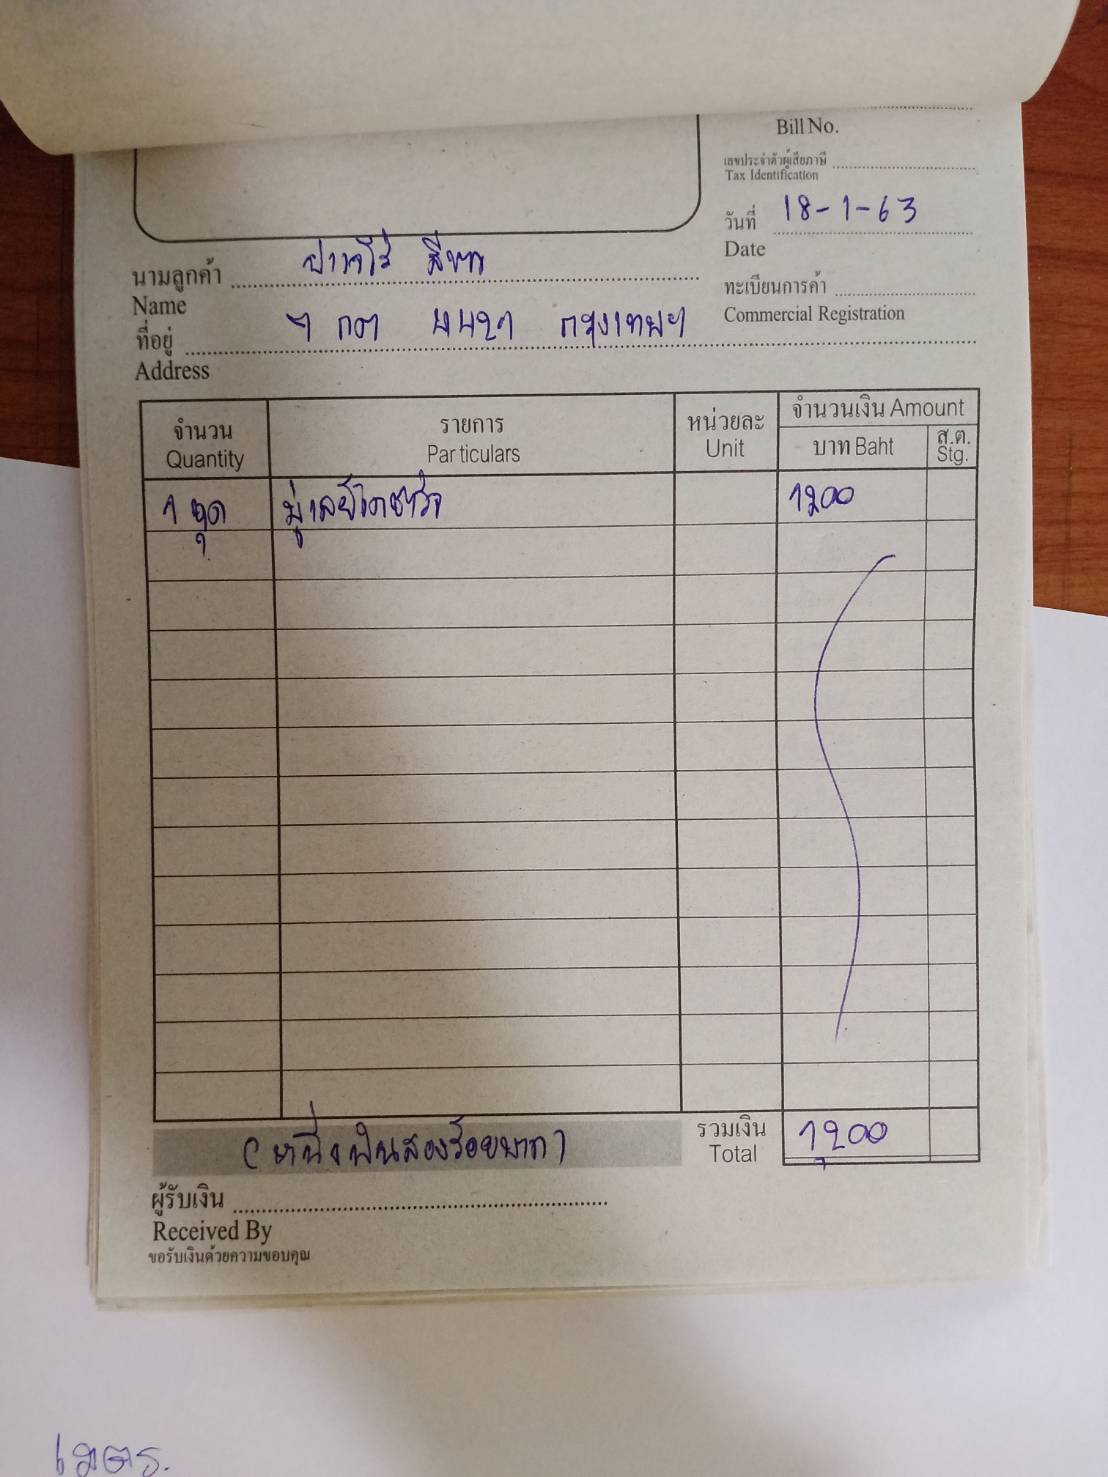 Bill No.
เลขประจำตัวผู้เสียภาษี
Tax Identification
วันที่ 18-1-63
Date
นามลูกค้า
Name
ทะเบียนการค้า
Commercial Registration
ที่อยู่ กรุงเทพฯ
Address
จำนวน รายการ หน่วยละ จำนวนเงิน Amount
Quantity Particulars Unit บาท Baht ส.ต. Stg.
1 ชุด มู่เลย์ไดชาร์จ 1,200
(หนึ่งพันสองร้อยบาท) รวมเงิน 1,200
Total
ผู้รับเงิน
Received By
ขอรับเงินด้วยความขอบคุณ
เมตร.